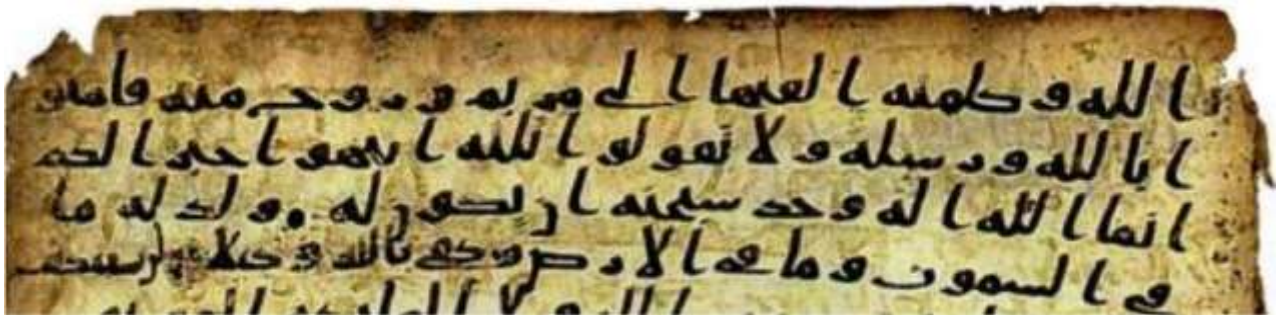 الله وكلمته القيها الى مريم وروح منه فامنو
ا بالله ورسله ولا تقولوا ثلثه انتهوا خيرا لكم
انما الله اله وحد سبحنه ان يكون له ولد له ما
في السموت وما في الارض وكفى بالله وكيلا لن يستنكف